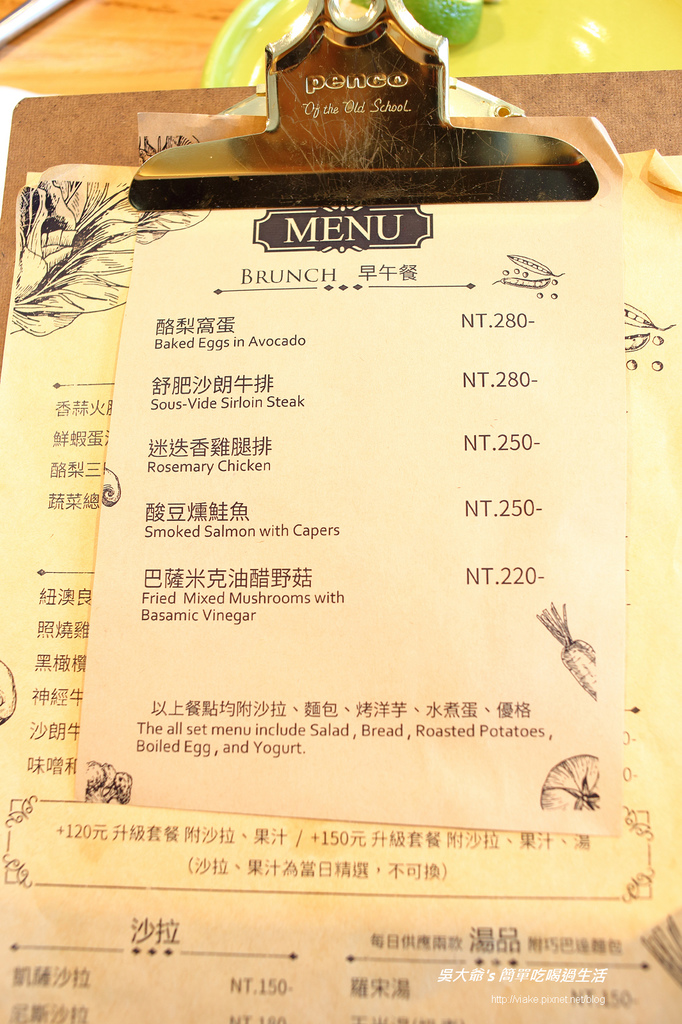 penco
Of the Old School.
MENU
BRUNCH 早午餐
酪梨窩蛋 NT.280-
Baked Eggs in Avocado
舒肥沙朗牛排 NT.280-
Sous-Vide Sirloin Steak
迷迭香雞腿排 NT.250-
Rosemary Chicken
酸豆燻鮭魚 NT.250-
Smoked Salmon with Capers
巴薩米克油醋野菇 NT.220-
Fried Mixed Mushrooms with
Basamic Vinegar
以上餐點均附沙拉、麵包、烤洋芋、水煮蛋、優格
The all set menu include Salad , Bread , Roasted Potatoes ,
Boiled Egg , and Yogurt.
香蒜火腿
鮮蝦蛋
酪梨三
蔬菜總
紐澳良
照燒雞
黑橄欖
神經牛
沙朗牛
味噌和
0-
0-
+120元 升級套餐 附沙拉、果汁 / +150元 升級套餐 附沙拉、果汁、湯
（沙拉、果汁為當日精選，不可換）
沙拉
凱薩沙拉 NT.150-
尼斯沙拉 NT.180-
每日供應兩款 湯品 附巧巴達麵包
羅宋湯 NT.150-
吳大爺's 簡單吃喝過生活
http://viake.pixnet.net/blog